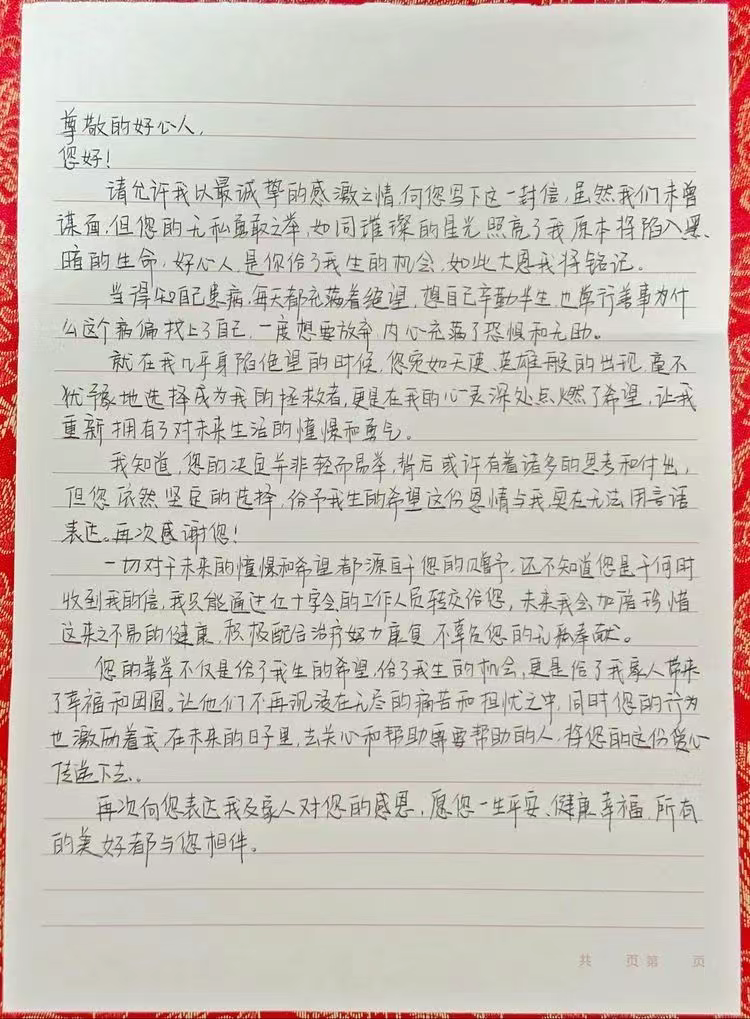 尊敬的好心人,
您好!
请允许我以最诚挚的感激之情,向您写下这一封信,虽然我们未曾
谋面,但您的无私勇敢之举,如同璀璨的星光照亮了我原本将陷入黑
暗的生命,好心人,是你给了我生的机会,如此大恩我将铭记。
当得知自己患病,每天都充满着绝望,想自己辛勤半生,也常行善事为什
么这个病偏找上了自己,一度想要放弃,内心充满了恐惧和无助。
就在我几乎身陷绝望的时候,您宛如天使、英雄般的出现,毫不
犹豫地选择成为我的拯救者,更是在我的心灵深处点燃了希望,让我
重新拥有了对未来生活的憧憬和勇气。
我知道,您的决定并非轻而易举,背后或许有着诸多的思考和付出,
但您依然坚定的选择,给予我生的希望这份恩情与我,实在无法用言语
表达。再次感谢您!
一切对于未来的憧憬和希望都源自于您的赠予,还不知道您是于何时
收到我的信,我只能通过红十字会的工作人员转交给您,未来我会加倍珍惜
这来之不易的健康,积极配合治疗努力康复,不辜负您的无私奉献。
您的善举不仅是给了我生的希望,给了我生的机会,更是给了我家人带来
了幸福和团圆。让他们不再沉浸在无尽的痛苦和担忧之中,同时您的行为
也激励着我,在未来的日子里,去关心和帮助需要帮助的人,将您的这份爱心
传递下去。
再次向您表达我及家人对您的感恩,愿您一生平安、健康幸福,所有
的美好都与您相伴。
共 页 第 页